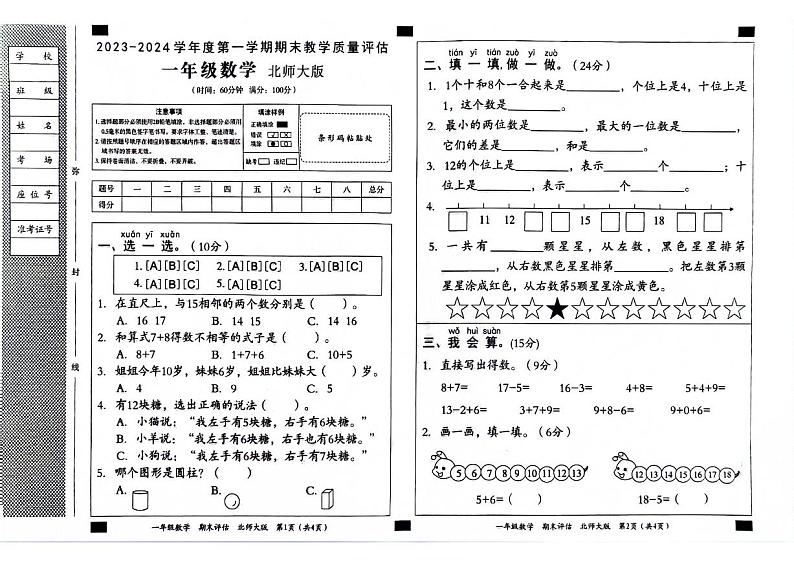 学 校
班 级
姓 名
考 场
座 位 号
准考证号
弥
封
线
2023-2024学年度第一学期期末教学质量评估
一年级数学 北师大版
(时间:60分钟 满分:100分)
注意事项
1.选择题部分必须使用2B铅笔填涂,非选择题部分必须用
0.5毫米的黑色签字笔书写,要求字体工整、笔迹清楚。
2.请按照题号顺序在相应的答题区域内作答,超出答题区
域书写的答案无效。
3.保持卷面清洁,不要折叠、不要弄破。
填涂样例
正确填涂
错误
填涂
缺考 违纪
条形码粘贴处
题号 一 二 三 四 五 六 七 八 总分
得分
xuǎn yī xuǎn
一、选 一 选。(10分)
1.[A][B][C] 2.[A][B][C] 3.[A][B][C]
4.[A][B][C] 5.[A][B][C]
1. 在直尺上,与15相邻的两个数分别是( )。
A. 16 17 B. 14 15 C. 14 16
2. 和算式7+8得数不相等的式子是( )。
A. 8+7 B. 1+7+6 C. 10+5
3. 姐姐今年10岁,妹妹6岁,姐姐比妹妹大( )岁。
A. 4 B. 9 C. 5
4. 有12块糖,选出正确的说法( )。
A. 小猫说:“我左手有5块糖,右手有6块糖。”
B. 小羊说:“我左手有6块糖,右手也有6块糖。”
C. 小狗说:“我左手有6块糖,右手有7块糖。”
5. 哪个图形是圆柱?( )
A. B. C.
一年级数学 期末评估 北师大版 第1页(共4页)
tián yī tián zuò yī zuò
二、填 一 填,做 一 做。(24分)
1. 1个十和8个一合起来是________,个位上是4,十位上是
1,这个数是________。
2. 最小的两位数是________,最大的一位数是________,
它们的差是________,和是________。
3. 12的个位上是________,表示________个________;十
位上是________,表示________个________。
4.
11 12 15 18
5. 一共有________颗星星,从左数,黑色星星排第
________,从右数黑色星星排第________。把左数第3颗
星星涂成红色,从右数第5颗星星涂成黄色。
wǒ huì suàn
三、我 会 算。(15分)
1. 直接写出得数。(9分)
8+7= 17-5= 16-3= 4+8= 5+4+9=
13-2+6= 3+7+9= 9+8-6= 9+0+6=
2. 画一画,填一填。(6分)
5 6 7 8 9 10 11 12 13
12 13 14 15 16 17 18
5+6=( ) 18-5=( )
一年级数学 期末评估 北师大版 第2页(共4页)